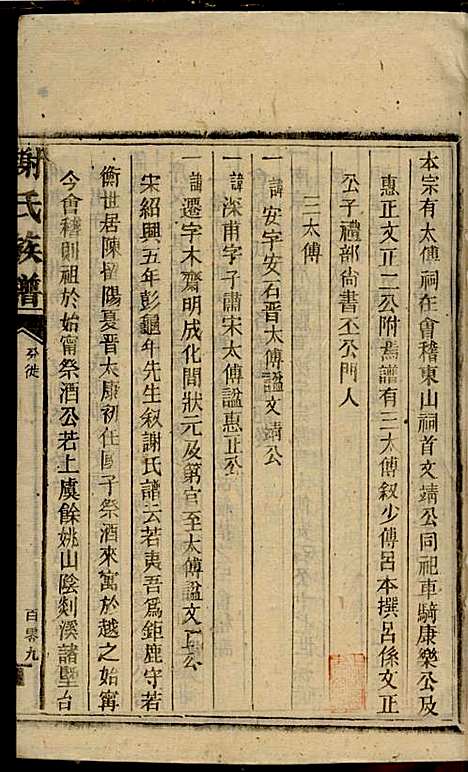 本宗有太傅祠在會稽東山祠首文靖公同祀車騎康樂公及
惠正文正二公附焉譜有三太傅叙少傅呂本撰呂係文正
公子禮部尚書丕公門人
三太傅
一諱安字安石晉太傅謚文靖公
一諱深甫字子肅宋太傅謚惠正公
一諱遷字木齋明成化間狀元及第官至太傅謚文正公
宋紹興五年彭龜年先生叙謝氏譜云若夷吾爲鉅鹿守若
衡世居陳留陽夏晉太康初任國子祭酒來寓於越之始甯
今會稽則祖於始甯祭酒公若上虞餘姚山陰剡溪諸墅台
謝氏族譜
百零九